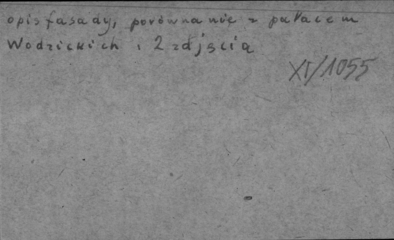 opis fasady, porównanie z pałacem
Wodzickich i 2 zdjęcia
XI/1055